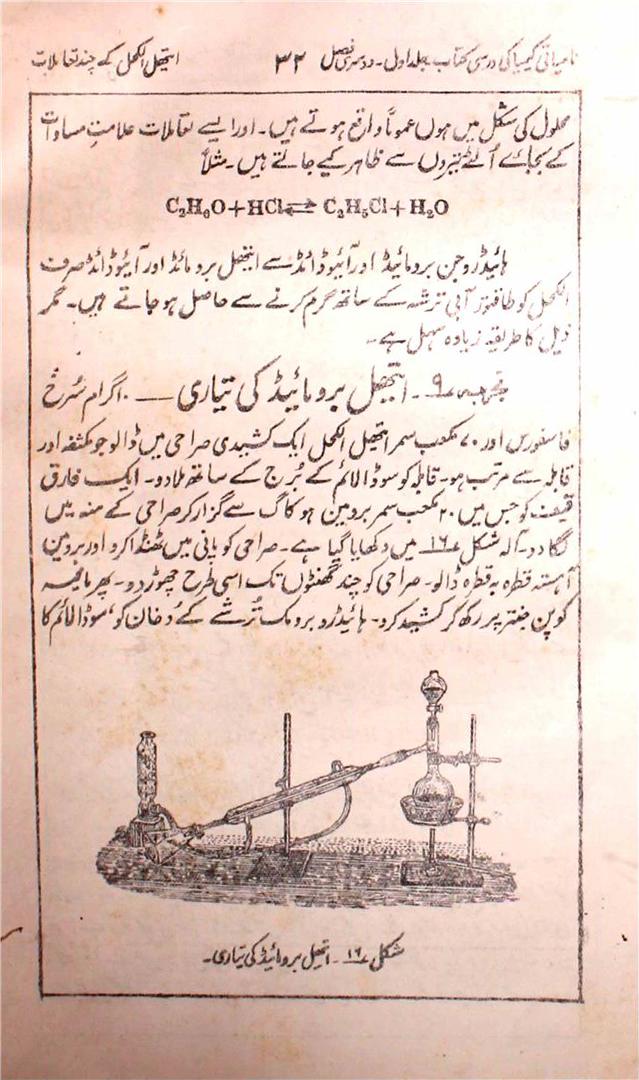 نامیاتی کیمیا کی درسی کتاب جلد اول۔ دوسری فصل ۳۲ ایتھل الکحل کے چند تعاملات
محلول کی شکل میں ہوں عموماً واقع ہوتے ہیں۔ اور ایسے تعاملات علامتِ مساوات
کے بجائے اُلٹے تیروں سے ظاہر کیے جاتے ہیں۔ مثلاً
C₂H₆O + HCl ⇌ C₂H₅Cl + H₂O
ہائیڈروجن برومائیڈ اور آیوڈائڈ سے ایتھل برومائڈ اور آیوڈائڈ صرف
الکحل کو طاقتور آبی ترشہ کے ساتھ گرم کرنے سے حاصل ہو جاتے ہیں۔ مگر
ذیل کا طریقہ زیادہ سہل ہے۔
تجربہ ۹۔ ایتھل برومائیڈ کی تیاری — ۱۰ گرام سُرخ
فاسفورس اور ۷۰ مکعب سمر ایتھل الکحل ایک کشیدی صراحی میں ڈالو جو مکثفہ اور
قابلہ سے مرتب ہو۔ قابلہ کو سوڈا لائم کے بُرج کے ساتھ ملا دو۔ ایک فارق
قیف کو جس میں ۲۰ مکعب سمر برومین ہو کاگ سے گزار کر صراحی کے منہ میں
لگا دو۔ آلہ شکل ۱۶ میں دکھایا گیا ہے۔ صراحی کو پانی میں ٹھنڈا کرو اور برومین
آہستہ قطرہ بہ قطرہ ڈالو۔ صراحی کو چند گھنٹوں تک اسی طرح چھوڑ دو۔ پھر مافیہ
کو پن جنتر پر رکھ کر کشید کرو۔ ہائیڈرو برومک تُرشے کے دُخان کو سوڈا لائم کا
شکل ۱۶۔ ایتھل برومائیڈ کی تیاری۔